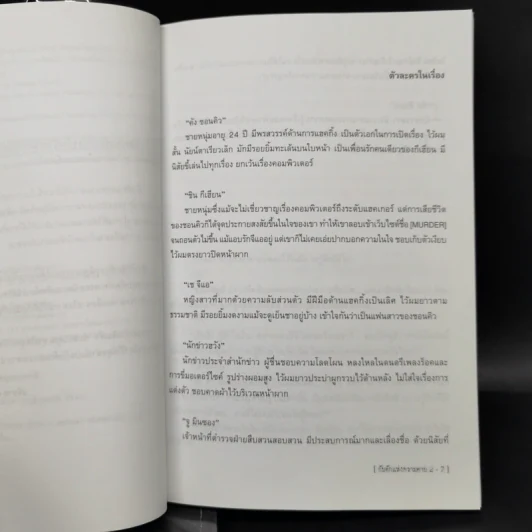 ตัวละครในเรื่อง
"คัง ซอนคิว"
ชายหนุ่มอายุ 24 ปี มีพรสวรรค์ด้านการแฮคกิ้ง เป็นตัวเอกในการเปิดเรื่อง ไว้ผม
สั้น นัยน์ตาเรียวเล็ก มักมีรอยยิ้มทะเล้นบนใบหน้า เป็นเพื่อนรักคนเดียวของกีเฮียน มี
นิสัยขี้เล่นไปทุกเรื่อง ยกเว้นเรื่องคอมพิวเตอร์
"ชิน กีเฮียน"
ชายหนุ่มซึ่งแม้จะไม่เชี่ยวชาญเรื่องคอมพิวเตอร์ถึงระดับแฮคเกอร์ แต่การเสียชีวิต
ของซอนคิวก็ได้จุดประกายสงสัยขึ้นในใจของเขา ทำให้เขาลอบเข้าเว็บไซต์ชื่อ [MURDER]
จนถอนตัวไม่ขึ้น แม้แอบรักจีแอยู่ แต่เขาก็ไม่เคยเอ่ยปากบอกความในใจ ชอบเก็บตัวเงียบ
ไว้ผมตรงยาวปิดหน้าผาก
"เช จีแอ"
หญิงสาวที่มากด้วยความลับส่วนตัว มีฝีมือด้านแฮคกิ้งเป็นเลิศ ไว้ผมยาวตาม
ธรรมชาติ มีรอยยิ้มงดงามแม้จะดูเย็นชาอยู่บ้าง เข้าใจกันว่าเป็นแฟนสาวของซอนคิว
"นักข่าวฮวัง"
นักข่าวประจำสำนักข่าว ผู้ชื่นชอบความโลดโผน หลงใหลในดนตรีเพลงร็อคและ
การขี่มอเตอร์ไซค์ รูปร่างผอมสูง ไว้ผมยาวประบ่าผูกรวบไว้ด้านหลัง ไม่ใส่ใจเรื่องการ
แต่งตัว ชอบคาดผ้าไว้บริเวณหน้าผาก
"ชู มินซอง"
เจ้าหน้าที่ตำรวจฝ่ายสืบสวนสอบสวน มีประสบการณ์มากและเลื่องชื่อ ด้วยนิสัยที่